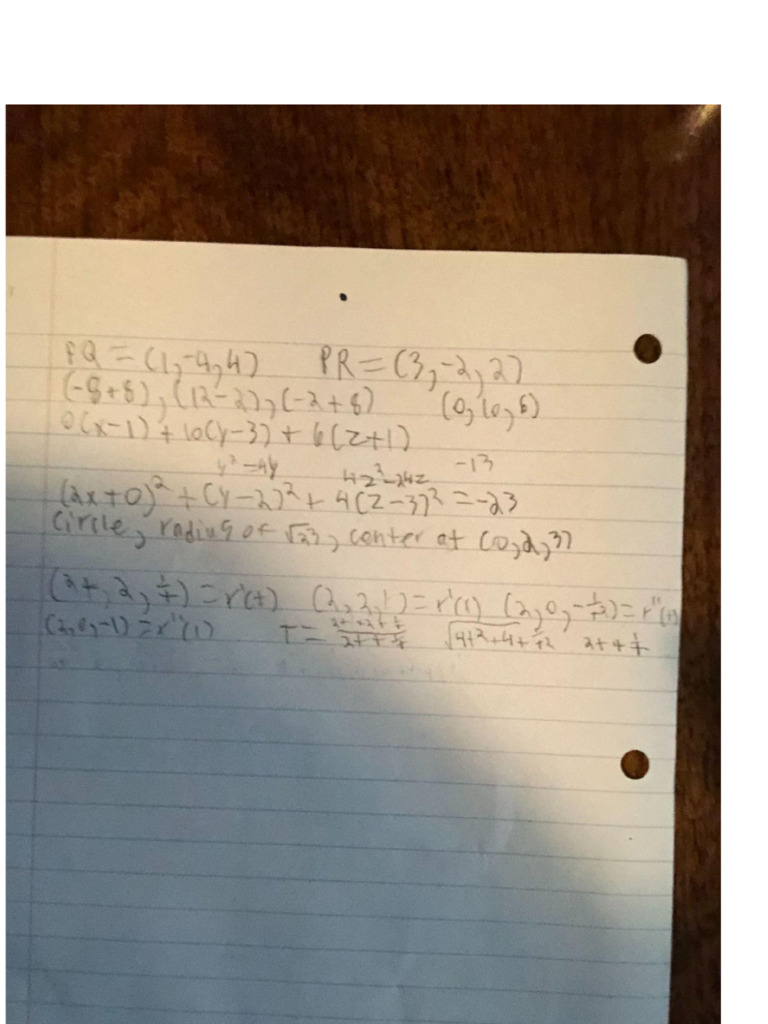 PQ = (1,-4,4) PR = (3,-2,2)
(-8+8), (12-2), (-2+8) (0,10,6)
0(x-1) + 10(y-3) + 6(z+1)
y²-4y 4z²-24z -13
(2x+0)² + (y-2)² + 4(z-3)² = -23
Circle, radius of √23, center at (0,2,3)
(2t, 2, 1/t) = r'(t) (2,2,1) = r'(1) (2,0,-1/t²) = r''(t)
(2,0,-1) = r''(1) T = √4t²+4+1/t² 2t+1/t